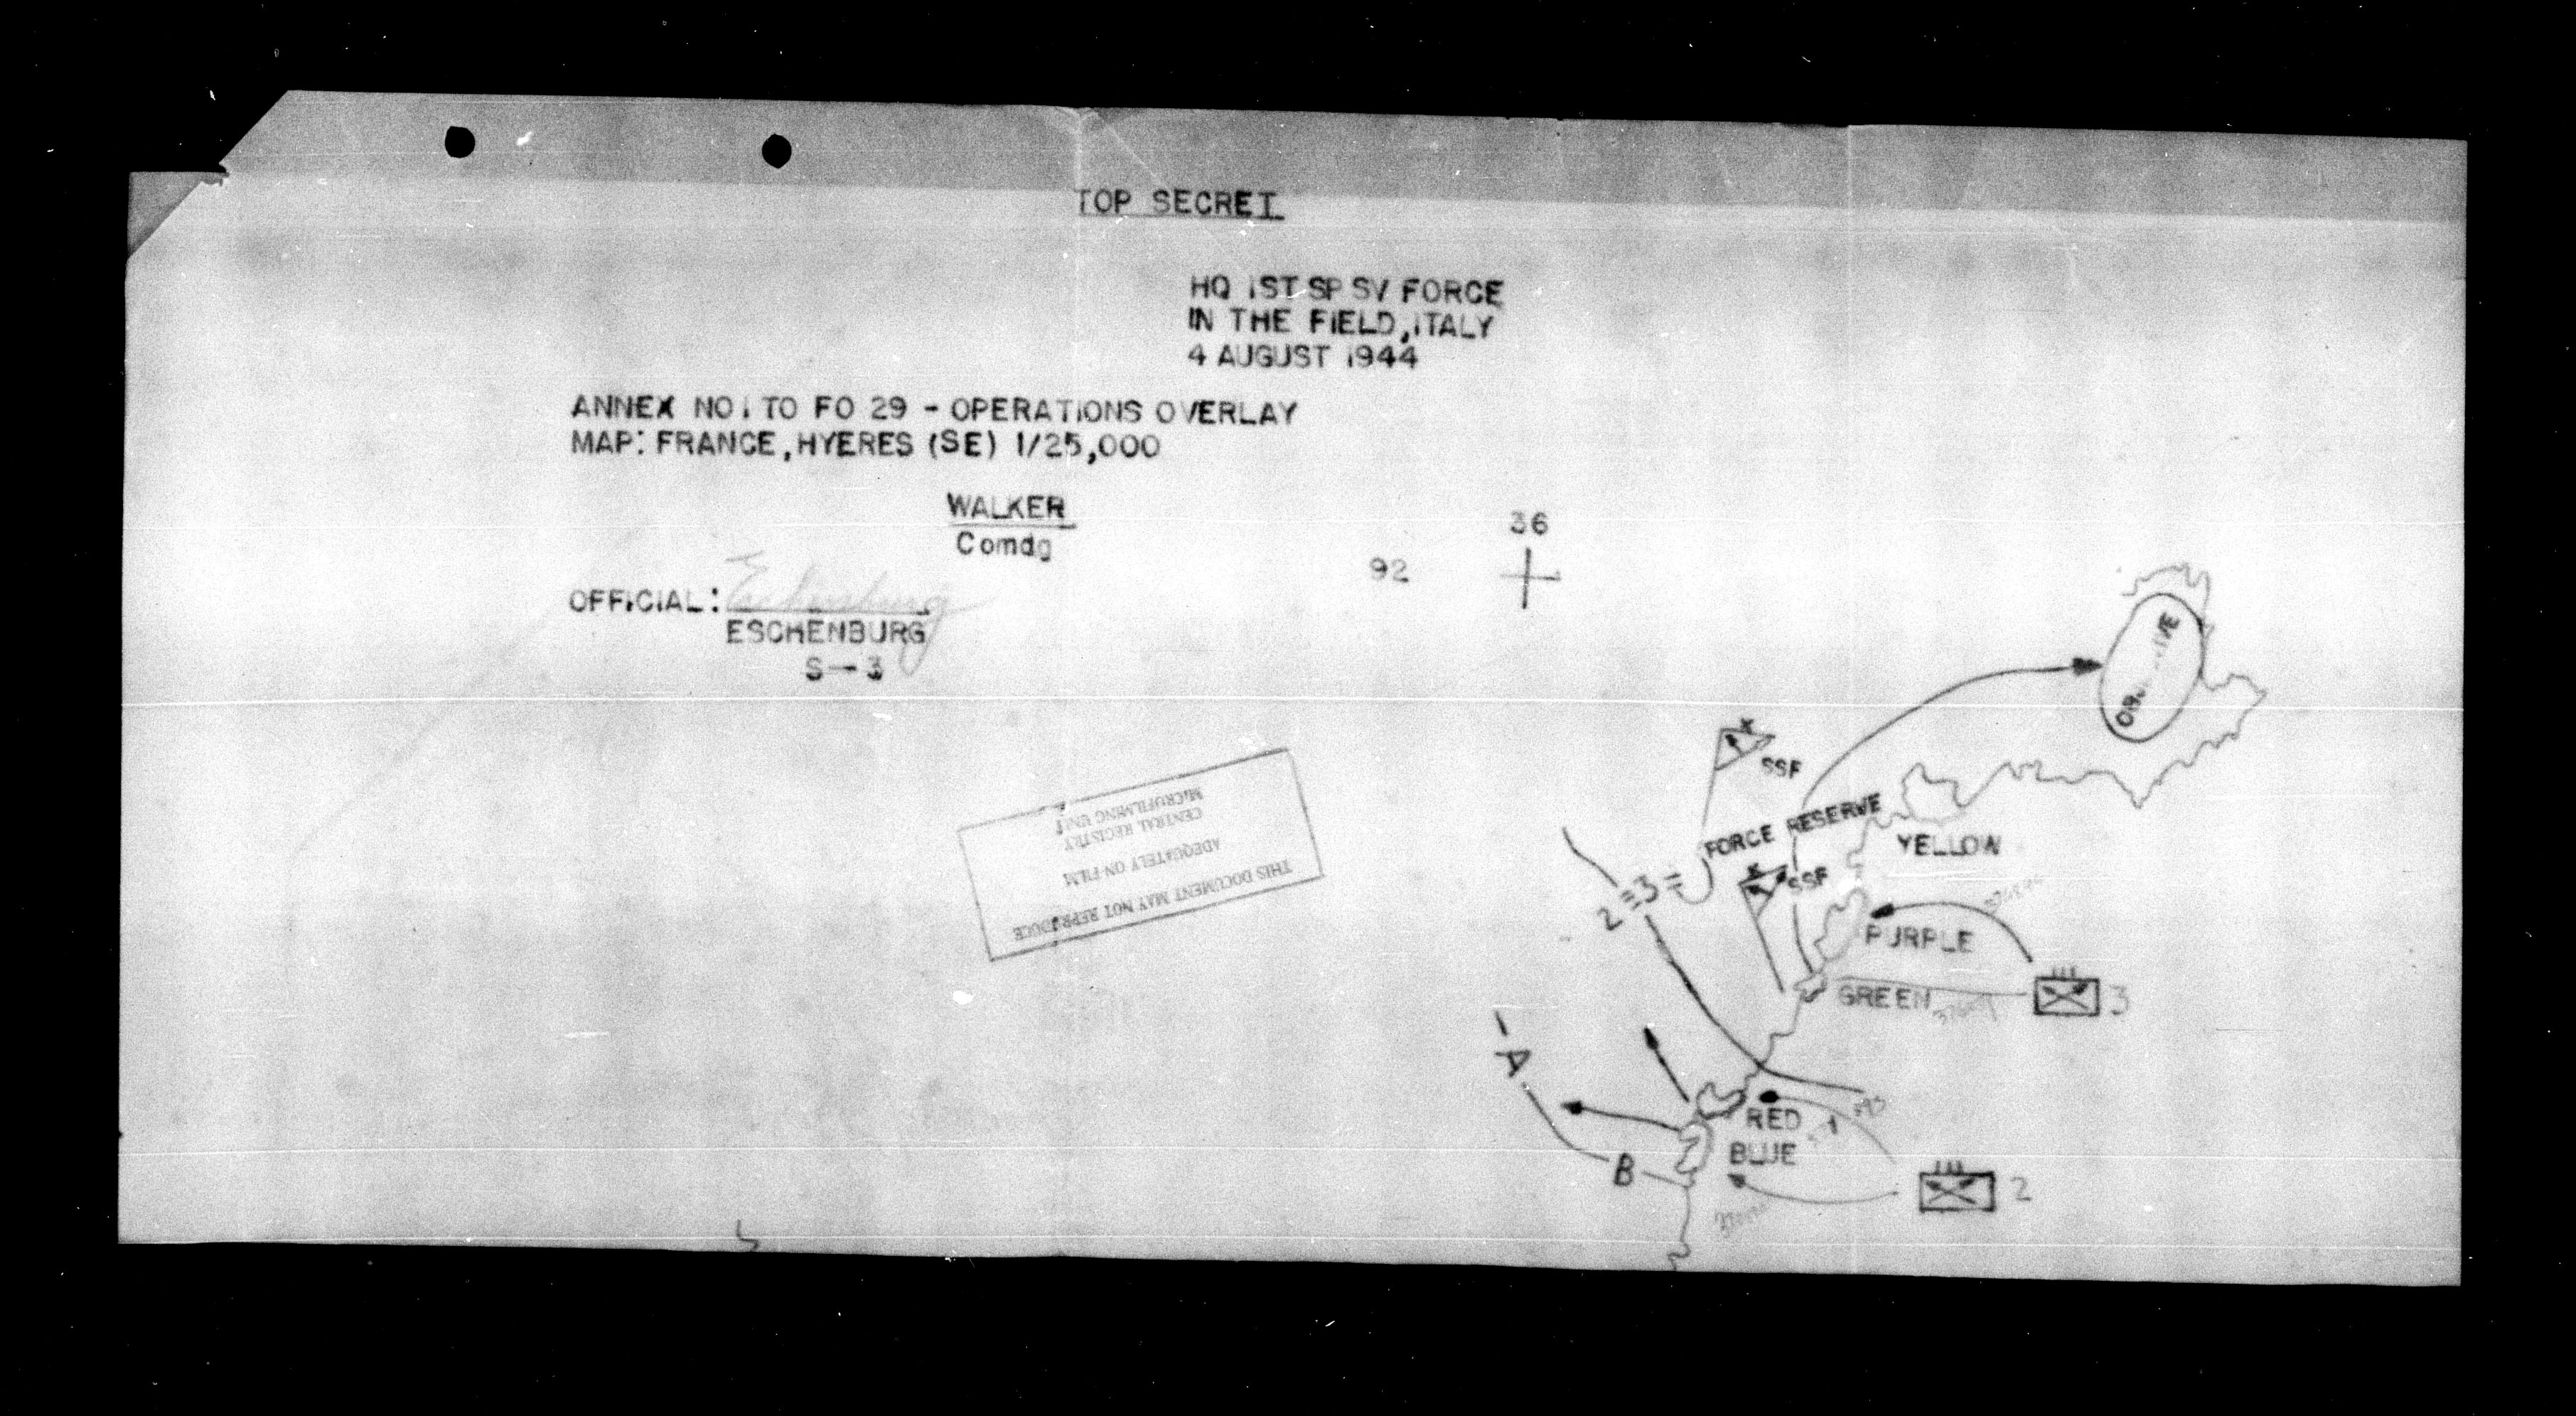 TOP SECRET
HQ 1ST SP SV FORCE
IN THE FIELD, ITALY
4 AUGUST 1944
ANNEX NO 1 TO FO 29 - OPERATIONS OVERLAY
MAP: FRANCE, HYERES (SE) 1/25,000
WALKER
Comdg
OFFICIAL: Eschenburg
ESCHENBURG
S-3
36
92
SSF
FORCE RESERVE
YELLOW
SSF
2 = 3 =
PURPLE
GREEN
3
A
RED
BLUE
B
2
THIS DOCUMENT MAY NOT REPRODUCE
ADEQUATELY ON FILM
CENTRAL REGISTRY
MICROFILMING UNIT